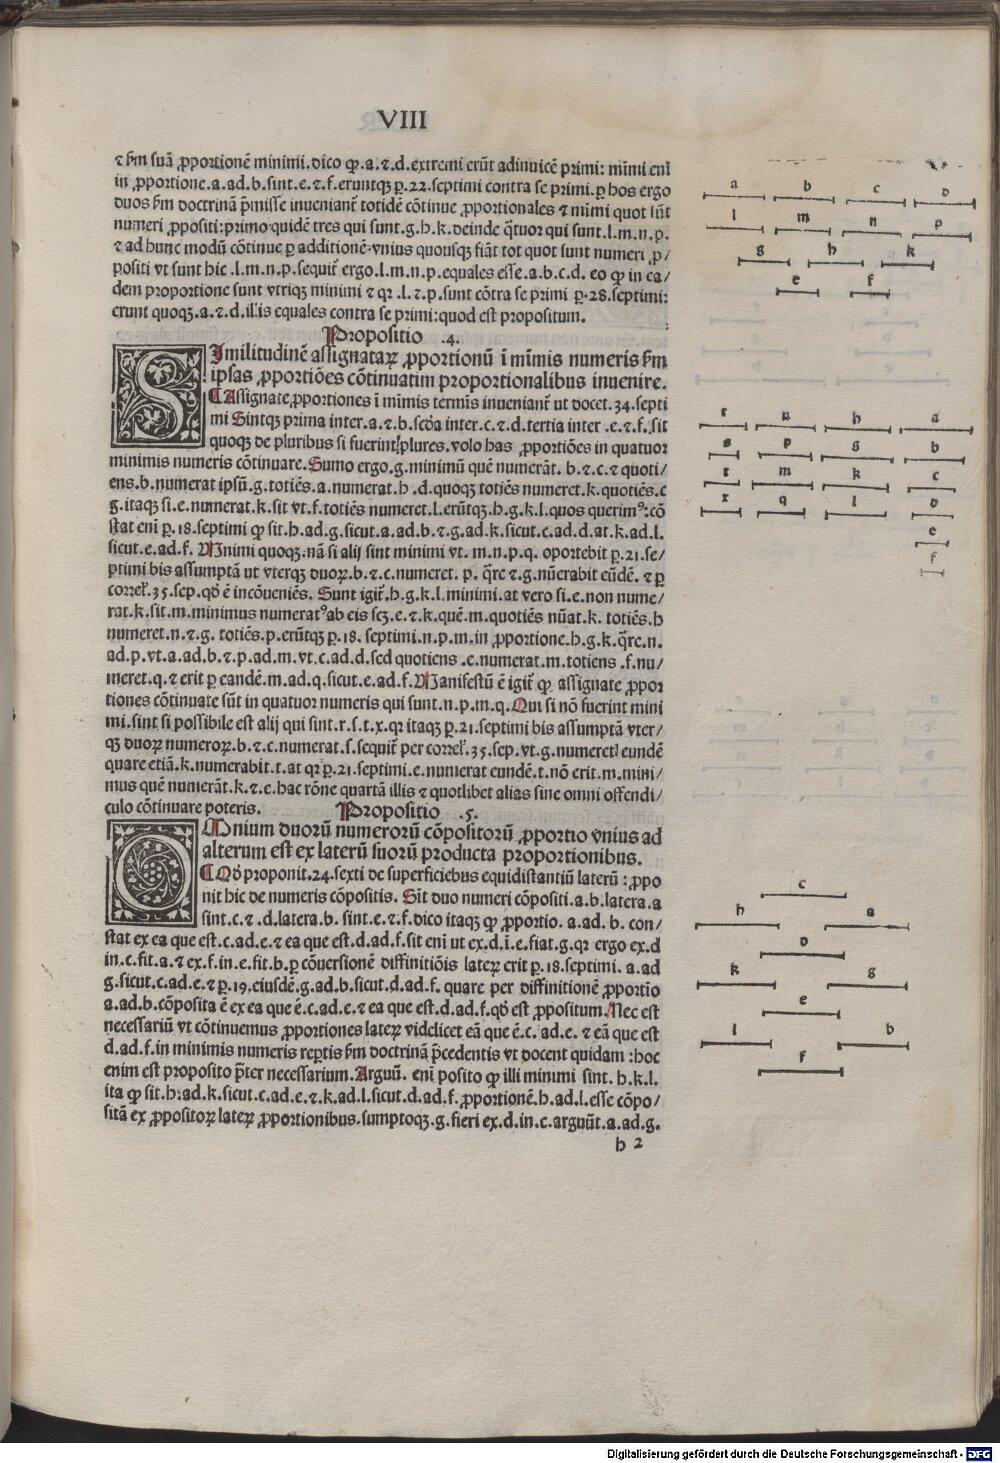 VIII
⁊ ẜm suā ꝓportionē minimi.dico ꝙ.a.⁊.d.extremi erūt adinuicē primi: mīmi enī
in ꝓportione.a.ad.b.sint.e.⁊.f.eruntqꝫ ꝑ.22.septimi contra se primi.ꝑ hos ergo
duos ẜm doctrinā p̄misse inueniant̄ totidē cōtinue ꝓportionales ⁊ mīmi quot sūt
numeri ꝓpositi:primo quidē tres qui sunt.g.h.k.deinde q̄tuor qui sunt.l.m.n.p.
⁊ ad hunc modū cōtinue ꝑ additionē vnius quousqꝫ fiāt tot quot sunt numeri ꝓ/
positi vt sunt hic .l.m.n.p.sequit̄ ergo.l.m.n.p.equales esse.a.b.c.d. eo ꝙ in ea/
dem proportione sunt vtriqꝫ minimi ⁊ qꝛ .l.⁊.p.sunt cōtra se primi ꝑ.28.septimi:
erunt quoqꝫ.a.⁊.d.illis equales contra se primi:quod est propositum.
Propositio .4.
SImilitudinē assignataꝝ ꝓportionū ī mīmis numeris ẜm
ipsas ꝓportiōes cōtinuatim proportionalibus inuenire.
¶ Assignate ꝓportiones ī mīmis termīs inueniant̄ ut docet.34.septi
mi Sintqꝫ prima inter.a.⁊.b.scd̄a inter.c.⁊.d.tertia inter .e.⁊.f.sit
quoqꝫ de pluribus si fuerint plures.volo has ꝓportiōes in quatuor
minimis numeris cōtinuare.Sumo ergo.g.minimū quē numerāt. b.⁊.c.⁊ quoti/
ens.b.numerat ipsū.g.totiēs.a.numerat.h .d.quoqꝫ totiēs numeret.k.quotiēs.c
g.itaqꝫ si.e.numerat.k.sit vt.f.totiēs numeret.l.erūtqꝫ.h.g.k.l.quos querimꝰ:cō
stat enī ꝑ.18.septimi ꝙ sit.h.ad.g.sicut.a.ad.b.⁊.g.ad.k.sicut.c.ad.d.at.k.ad.l.
sicut.e.ad.f. Minimi quoqꝫ:nā si alij sint minimi vt. m.n.p.q. oportebit ꝑ.21.se/
ptimi bis assumptā ut vterqꝫ duoꝝ.b.⁊.c.numeret. p. q̄re ⁊.g.nūerabit eūdē. ⁊ ꝑ
correl̄.35.sep.qd̄ ē incōueniēs. Sunt igit̄.h.g.k.l.minimi.at vero si.e.non nume/
rat.k.sit.m.minimus numeratꝰ ab eis scꝫ.e.⁊.k.quē.m.quotiēs nūat.k. totiēs.h
numeret.n.⁊.g. totiēs.p.erūtqꝫ ꝑ.18. septimi.n.p.m.in ꝓportione.h.g.k.q̄re.n.
ad.p.vt.a.ad.b.⁊.p.ad.m.vt.c.ad.d.sed quotiens .e.numerat.m.totiens .f.nu/
meret.q.⁊ erit ꝑ eandē.m.ad.q.sicut.e.ad.f. Manifestū ē igit̄ ꝙ assignate ꝓpor
tiones cōtinuate sūt in quatuor numeris qui sunt.n.p.m.q.Qui si nō fuerint mini
mi.sint si possibile est alij qui sint.r.s.t.x.qꝛ itaqꝫ ꝑ.21.septimi bis assumptā vter/
qꝫ duoꝝ numeroꝝ.b.⁊.c.numerat.s.sequit̄ per correl̄.35.sep.vt.g.numeret eundē
quare etiā.k.numerabit.t.at qꝛ ꝑ.21.septimi.e.numerat eundē.t.nō erit.m.mini/
mus quē numerāt.k.⁊.e.hac rōne quartā illis ⁊ quotlibet alias sine omni offendi/
culo cōtinuare poteris. Propositio .5.
OMnium duorū numerorū cōpositorū ꝓportio vnius ad
alterum est ex laterū suorū producta proportionibus.
¶ Qd̄ proponit.24.sexti de superficiebus equidistantiū laterū : ꝓpo
nit hic de numeris cōpositis. Sīt duo numeri cōpositi.a.b.latera.a
sint.c.⁊ .d.latera.b. sint.e.⁊.f.dico itaqꝫ ꝙ ꝓportio. a.ad. b. con/
stat ex ea que est.c.ad.e.⁊ ea que est.d.ad.f.sit enī ut ex.d.ī.e.fiat.g.qꝛ ergo ex.d
in.c.fit.a.⁊ ex.f.in.e.fit.b.ꝑ cōuersionē diffinitiōis lateꝝ erit ꝑ.18.septimi. a.ad
g.sicut.c.ad.e.⁊ ꝑ.19.eiusdē.g.ad.b.sicut.d.ad.f. quare per diffinitionē ꝓportīo
a.ad.b.cōposita ē ex ea que ē.c.ad.e.⁊ ea que est.d.ad.f.qd̄ est ꝓpositum.Nec est
necessariū vt cōtinuemus ꝓportiones lateꝝ videlicet eā que ē.c. ad.e. ⁊ eā que est
d.ad.f.in minimis numeris reꝑtis ẜm doctrinā p̄cedentis vt docent quidam :hoc
enim est proposito p̄ter necessarium.Arguū. enī posito ꝙ illi minimi sint. h.k.l.
ita ꝙ sit.h:ad.k.sicut.c.ad.e.⁊.k.ad.l.sicut.d.ad.f.ꝓportionē.h.ad.l.esse cōpo/
sitā ex ꝓpositoꝝ lateꝝ ꝓportionibus.sumptoqꝫ.g.fieri ex.d.in.c.arguūt.a.ad.g.
h 2
a b c d
l m n p
g h k
e f
r n h a
s p g b
t m k c
x q l d
e
f
c
h a
d
k g
e
l b
f
Digitalisierung gefördert durch die Deutsche Forschungsgemeinschaft - DFG